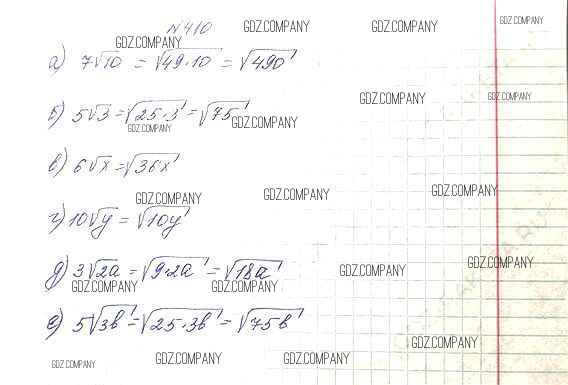 №410
GDZ.COMPANY GDZ.COMPANY GDZ.COMPANY GDZ.COMPANY
а) 7√10 = √49·10 = √490
GDZ.COMPANY GDZ.COMPANY
б) 5√3 = √25·3 = √75
GDZ.COMPANY GDZ.COMPANY
в) 6√x = √36x
GDZ.COMPANY GDZ.COMPANY GDZ.COMPANY
г) 10√y = √10y
д) 3√2a = √9·2a = √18a
GDZ.COMPANY GDZ.COMPANY GDZ.COMPANY GDZ.COMPANY
е) 5√3b = √25·3b = √75b
GDZ.COMPANY GDZ.COMPANY GDZ.COMPANY GDZ.COMPANY